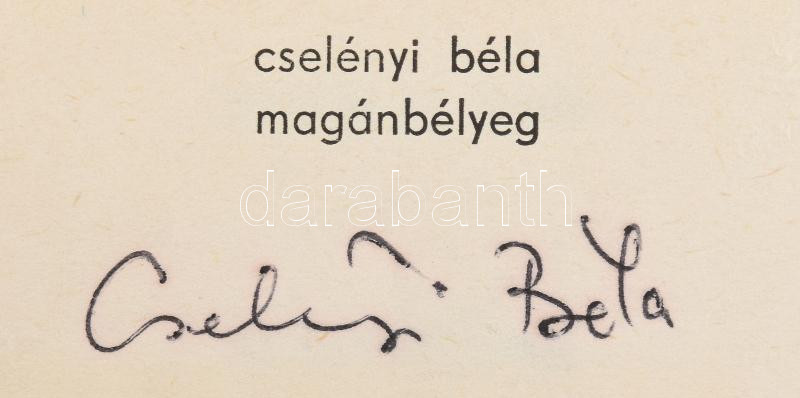 cselényi béla
magánbélyeg
darabanth
Cselényi Béla